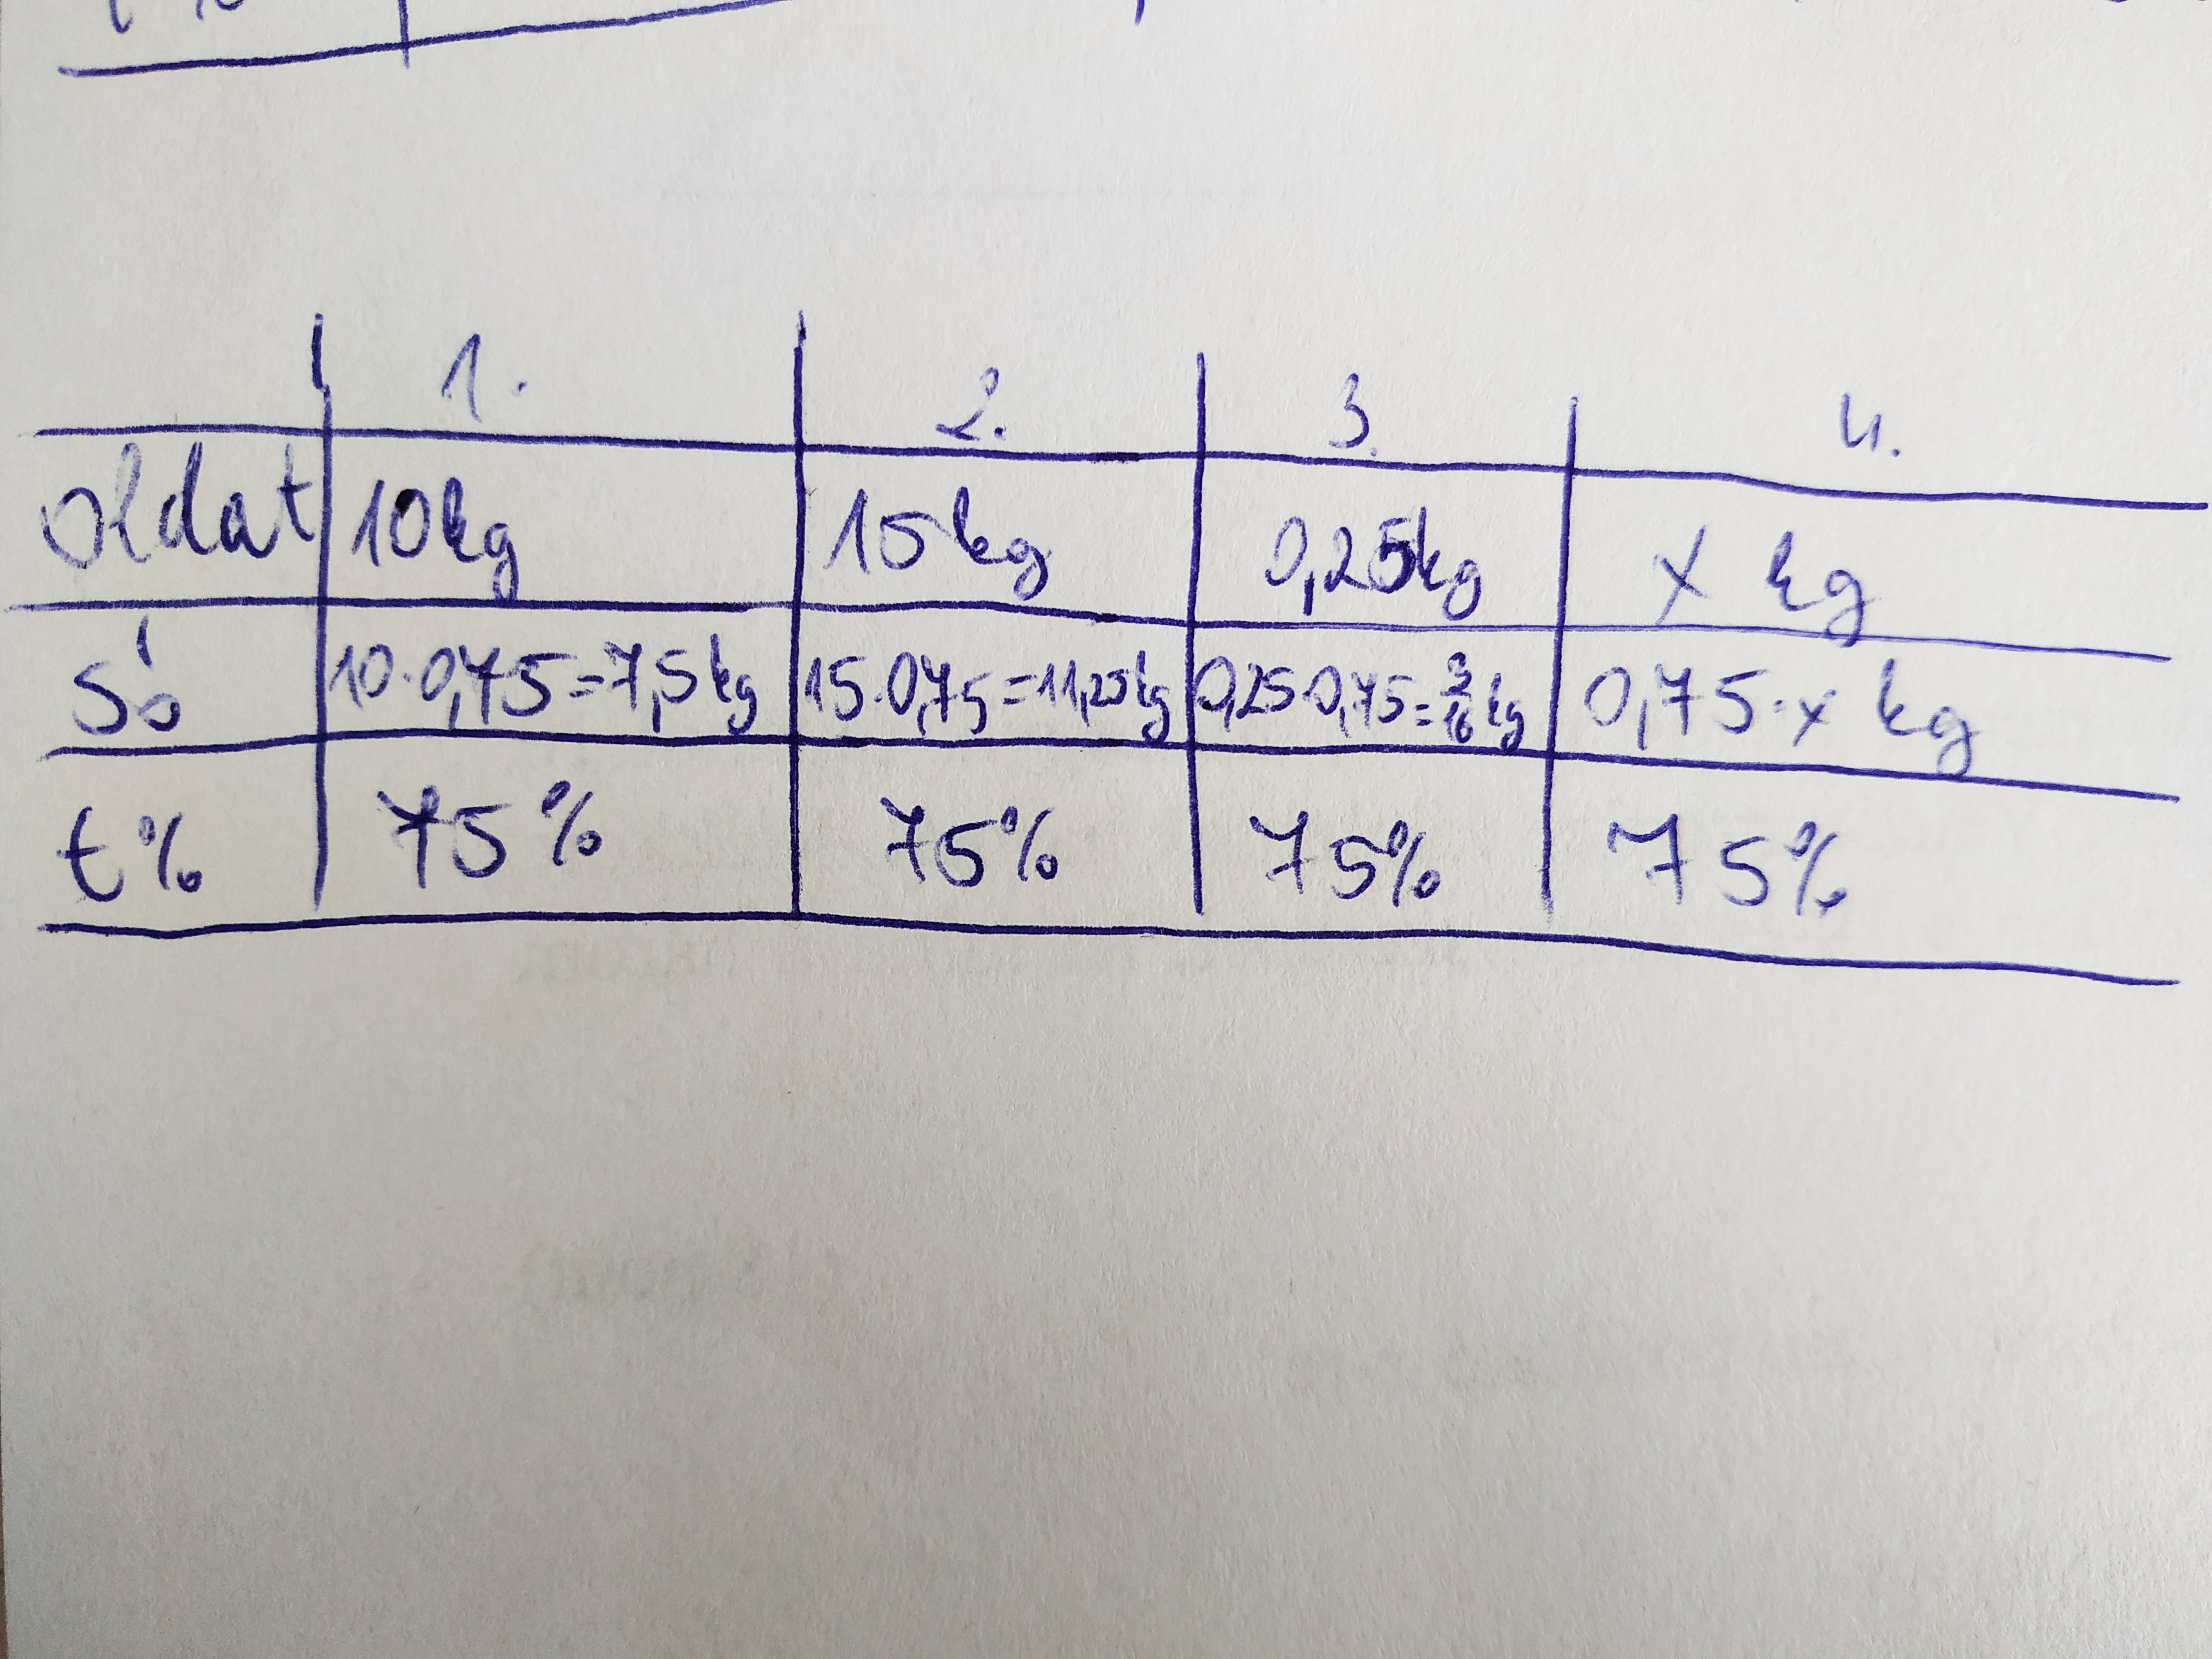 1. 2. 3. 4.
oldat 10kg 15kg 0,25kg x kg
Só 10·0,75=7,5kg 15·0,75=11,25kg 0,25·0,75=3/16kg 0,75·x kg
t% 75% 75% 75% 75%